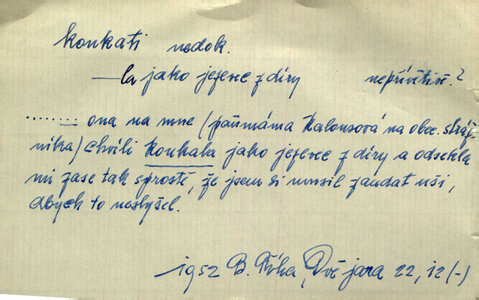 koukati nedok.
—la jako jezevec z díry nepřívětivě?
....... ona na mne (panímáma Kalousová na obec. stráž-
níka) chvíli koukala jako jezevec z díry a odsekla
mi zase tak sprostě, že jsem si musil zandat uši,
abych to neslyšel.
1952 B. Říha, Dvě jara 22, 12 (-)